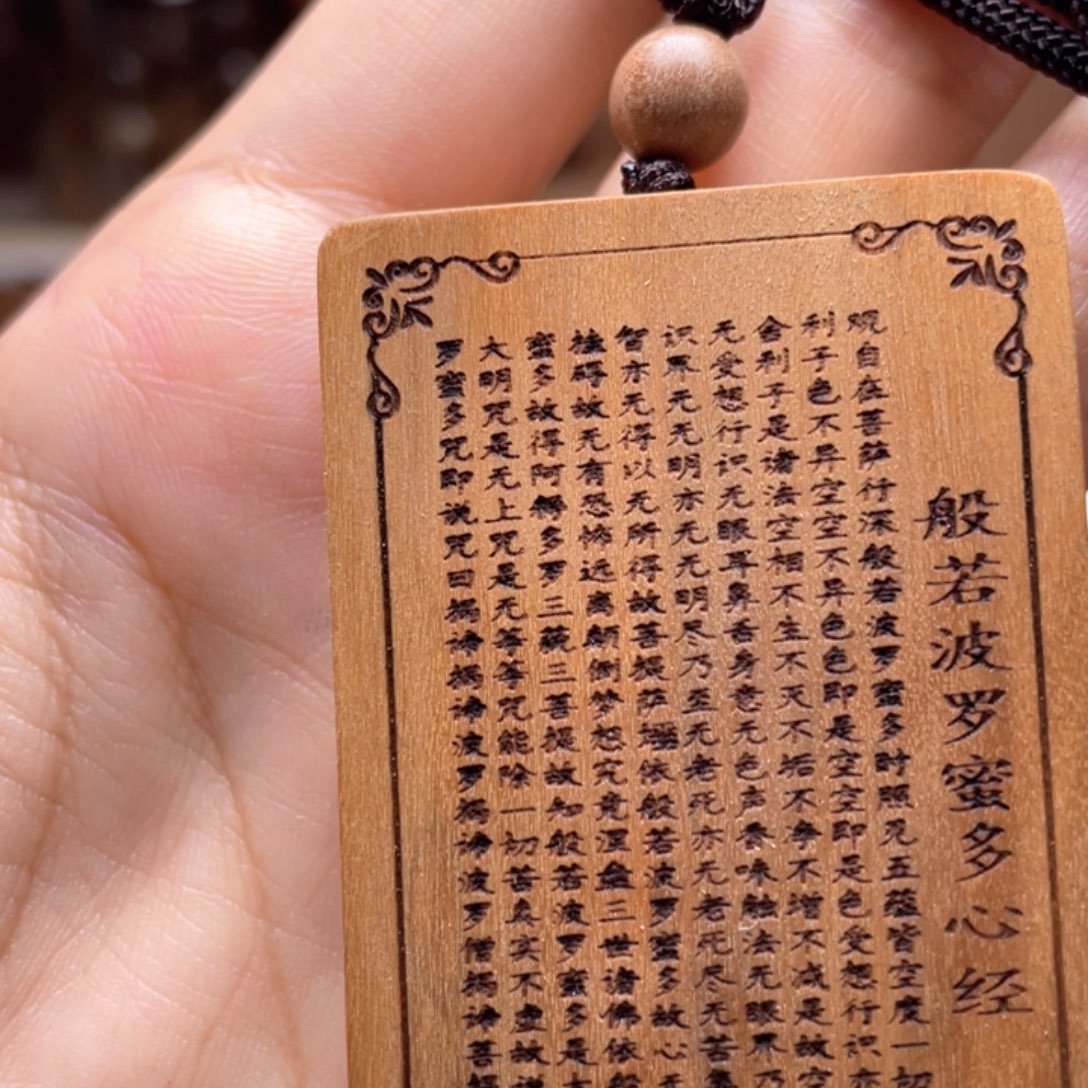 般若波罗蜜多心经
观自在菩萨行深般若波罗蜜多时照见五蕴皆空度一切
利子色不异空空不异色色即是空空即是色受想行识亦
舍利子是诸法空相不生不灭不垢不净不增不减是故空
无受想行识无眼耳鼻舌身意无色声香味触法无眼界乃
识界无无明亦无无明尽乃至无老死亦无老死尽无苦
智亦无得以无所得故菩提萨埵依般若波罗蜜多故心无
挂碍故无有恐怖远离颠倒梦想究竟涅盘三世诸佛依般
蜜多故得阿耨多罗三藐三菩提故知般若波罗蜜多是大
大明咒是无上咒是无等等咒能除一切苦真实不虚故说
罗蜜多咒即说咒曰揭谛揭谛波罗揭谛波罗僧揭谛菩